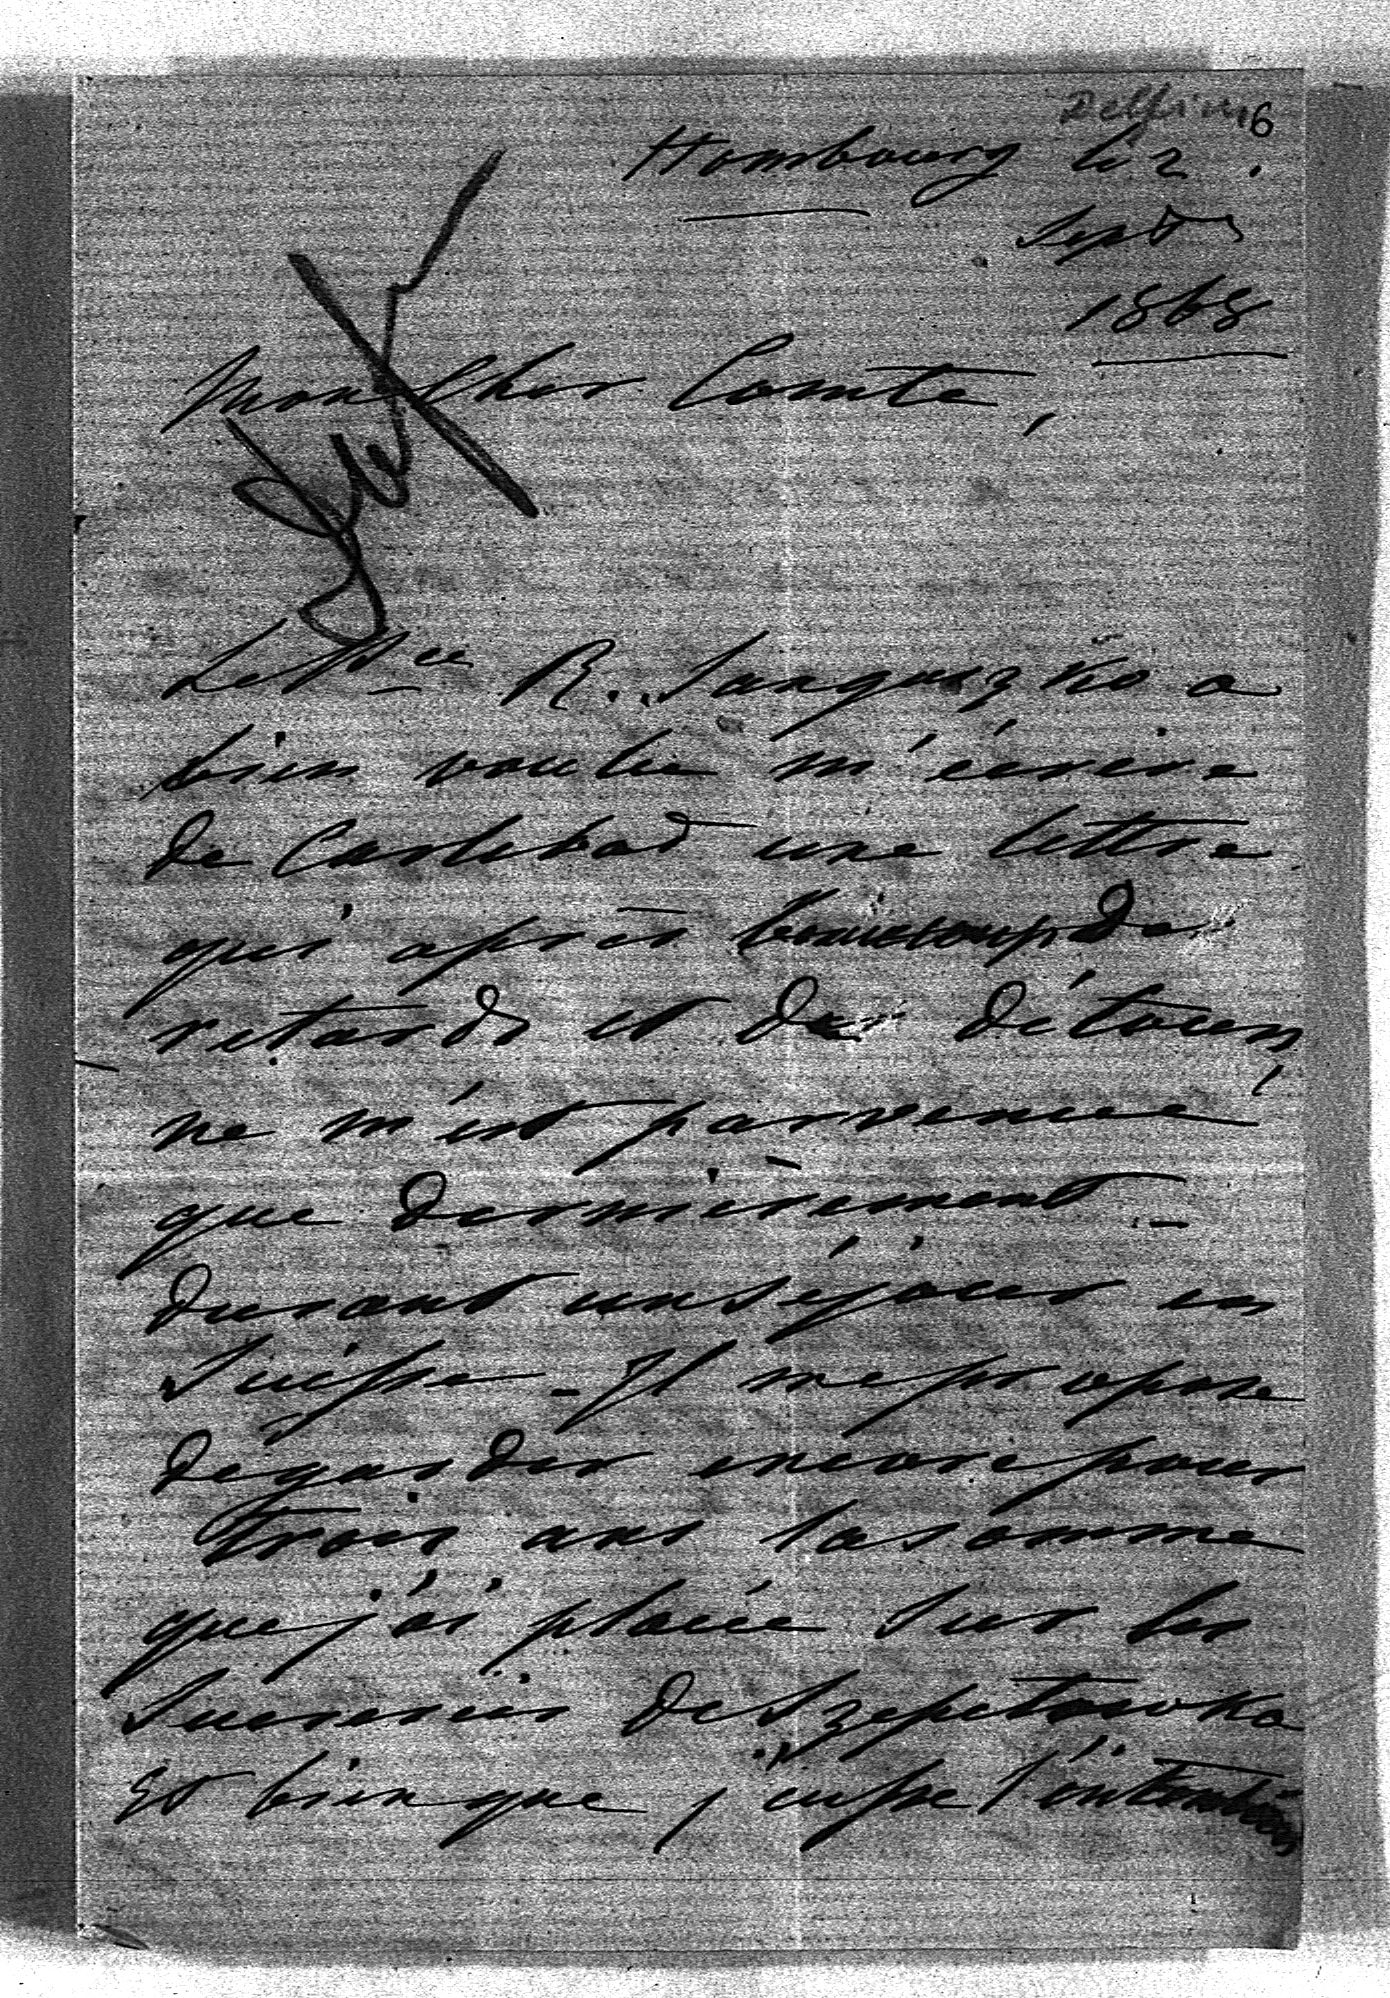 16
Hombourg le 2
Sept
1868
Mon Cher Comte,
Le Pce R. Sanguszko a
bien voulu m'écrire
de Carlsbad une lettre
qui après beaucoup de
retards et de détours
ne m'est parvenue
que dernièrement
durant un séjour en
Suisse - Il me propose
de garder encore pour
trois ans la somme
que j'ai placée sur les
sucreries de Szepetowka
et bien que j'eusse l'intention